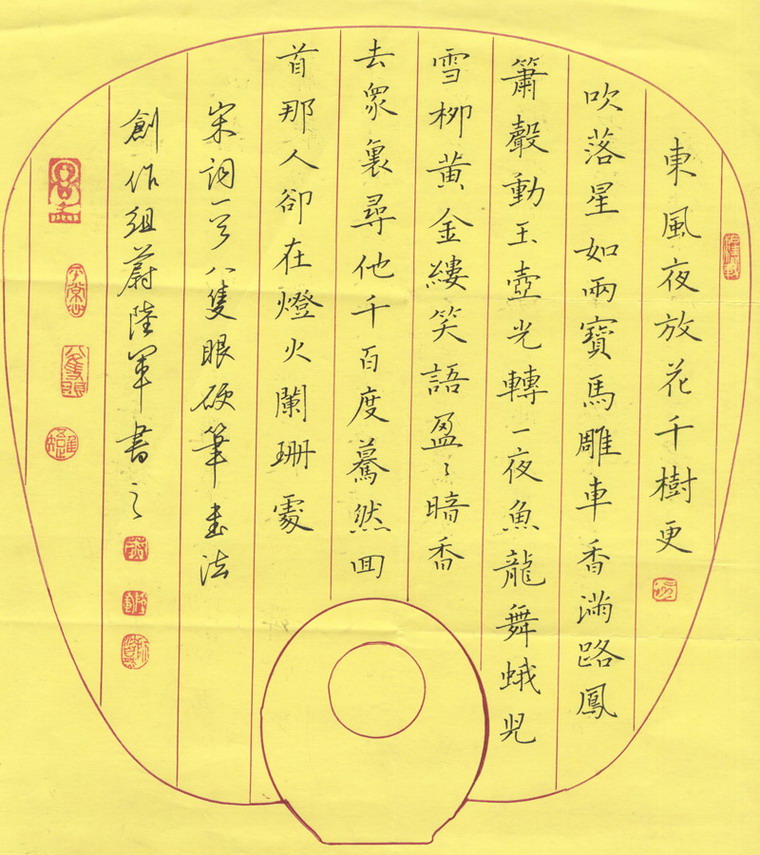 東風夜放花千樹更
吹落星如雨寶馬雕車香滿路鳳
簫聲動玉壺光轉一夜魚龍舞蛾兒
雪柳黃金縷笑語盈〻暗香
去衆裏尋他千百度驀然囬
首那人卻在燈火闌珊處
宋詞一首八隻眼硬筆書法
創作組蔚陸軍書之